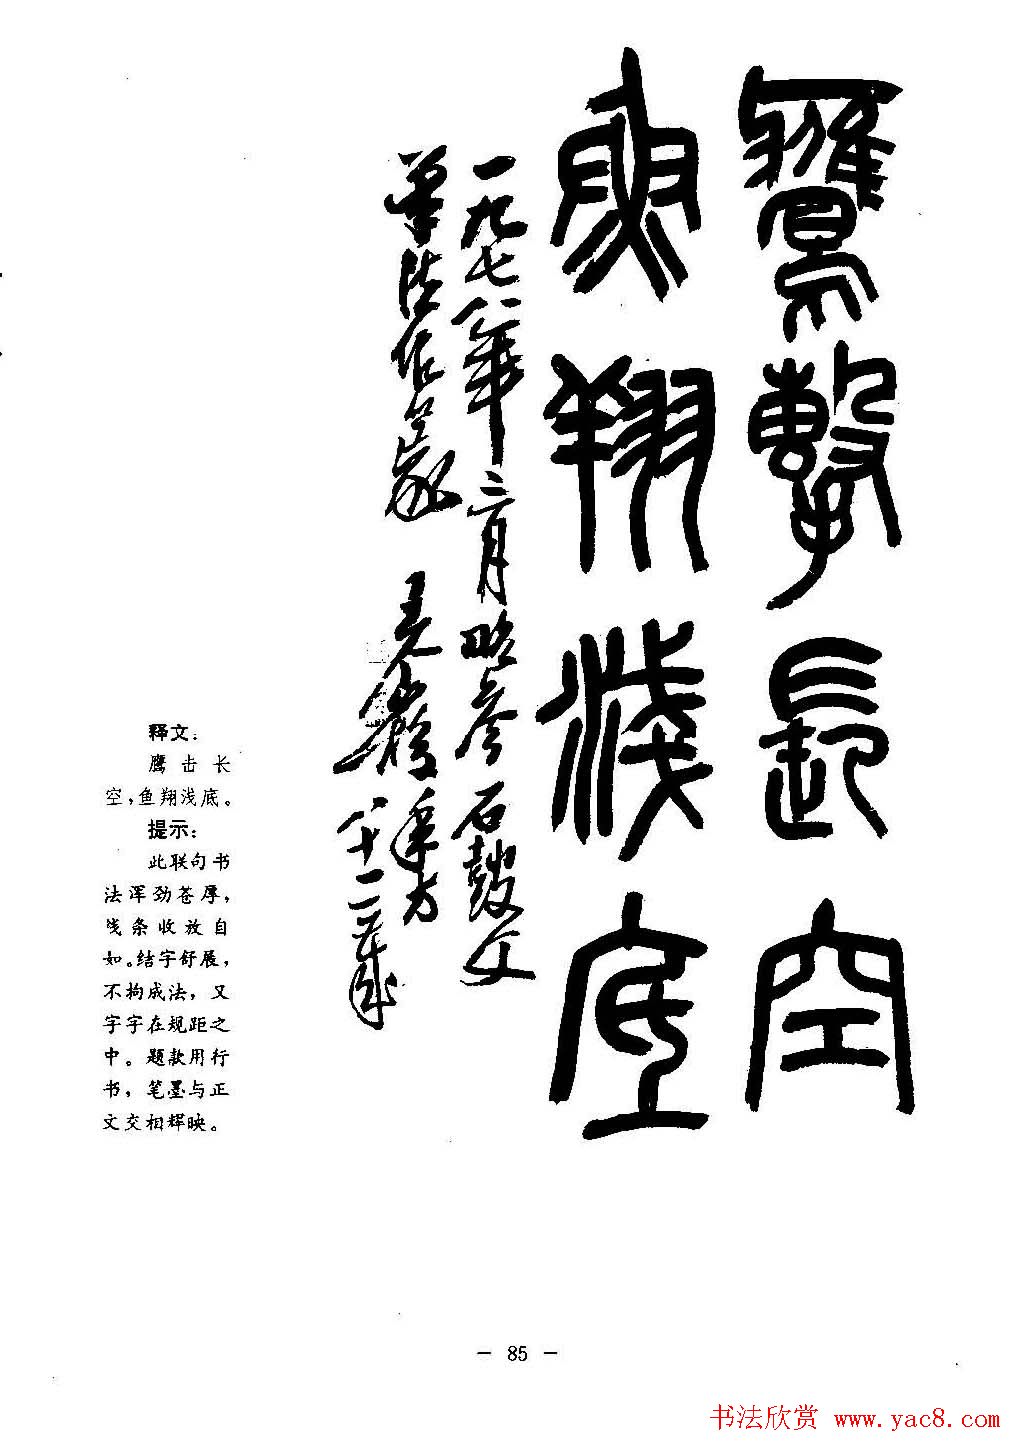 鷹擊長空
魚翔淺底
一九七八年三月略參石鼓文
筆法作篆
王个簃年方
八十二歲
释文:
鹰击长
空,鱼翔浅底。
提示:
此联句书
法浑劲苍厚,
线条收放自
如。结字舒展,
不拘成法,又
字字在规距之
中。题款用行
书,笔墨与正
文交相辉映。
— 85 —
书法欣赏 www.yac8.com